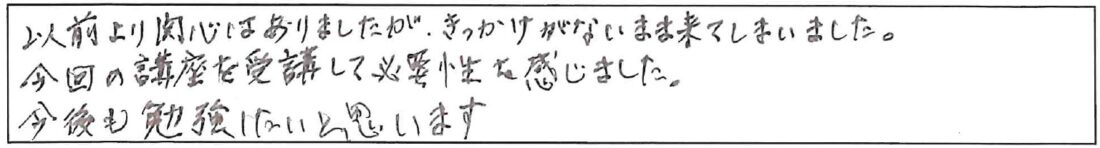 以前より関心はありましたが、きっかけがないまま来てしまいました。
今回の講座を受講して必要性を感じました。
今後も勉強したいと思います